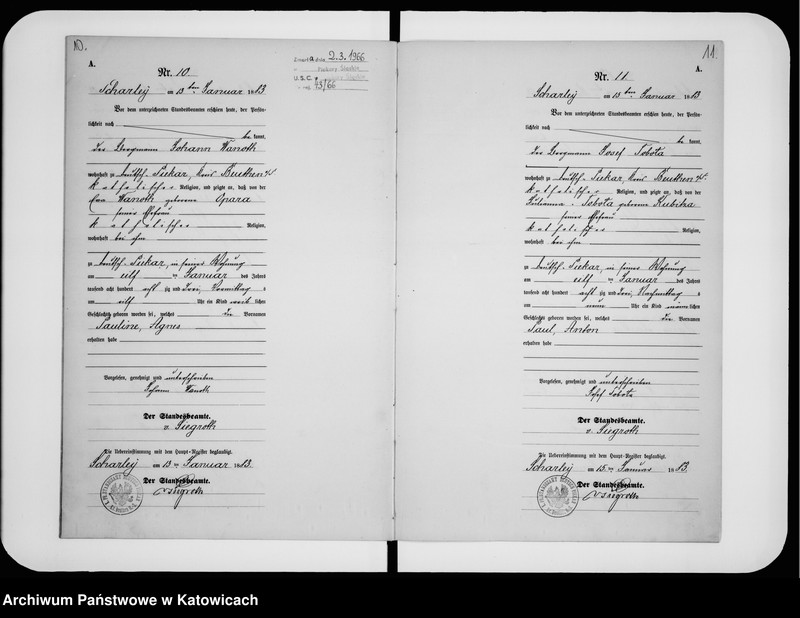 10.
A.
Nr. 10
Scharley am 13ten Januar 1883
Vor dem unterzeichneten Standesbeamten erschien heute, der Persön-
lichkeit nach
be kannt,
der Bergmann Johann Wanoth
wohnhaft zu Deutsch-Piekar, Kreis Beuthen
katholischer Religion, und zeigte an, daß von der
Wanoth geborene Opara
seiner Ehefrau
katholischer Religion,
wohnhaft bei ihm
zu Deutsch-Piekar, in seiner Wohnung
am elf ten Januar des Jahres
tausend acht hundert acht zig und drei, Vormittag s
um elf Uhr ein Kind weib lichen
Geschlechts geboren worden sei, welches die Vornamen
Pauline, Agnes
erhalten habe
Vorgelesen, genehmigt und unterschrieben
Johann Wanoth
Der Standesbeamte.
v. Siegroth
Die Uebereinstimmung mit dem Haupt-Register beglaubigt.
Scharley am 13ten Januar 1883.
Der Standesbeamte.
v. Siegroth
2.3.1966
U.S.C.
43/66
11.
A.
Nr. 11
Scharley am 13ten Januar 1883
Vor dem unterzeichneten Standesbeamten erschien heute, der Persön-
lichkeit nach
be kannt,
der Bergmann Josef Sobota
wohnhaft zu Deutsch-Piekar, Kreis Beuthen
katholischer Religion, und zeigte an, daß von der
Sobota geborene Kubitza
seiner Ehefrau
katholischer Religion,
wohnhaft bei ihm
zu Deutsch-Piekar, in seiner Wohnung
am elf ten Januar des Jahres
tausend acht hundert acht zig und drei, Nachmittag s
um neun Uhr ein Kind männ lichen
Geschlechts geboren worden sei, welches die Vornamen
Paul, Anton
erhalten habe
Vorgelesen, genehmigt und unterschrieben
Josef Sobota
Der Standesbeamte.
v. Siegroth
Die Uebereinstimmung mit dem Haupt-Register beglaubigt.
Scharley am 15ten Januar 1883.
Der Standesbeamte.
v. Siegroth
Archiwum Państwowe w Katowicach